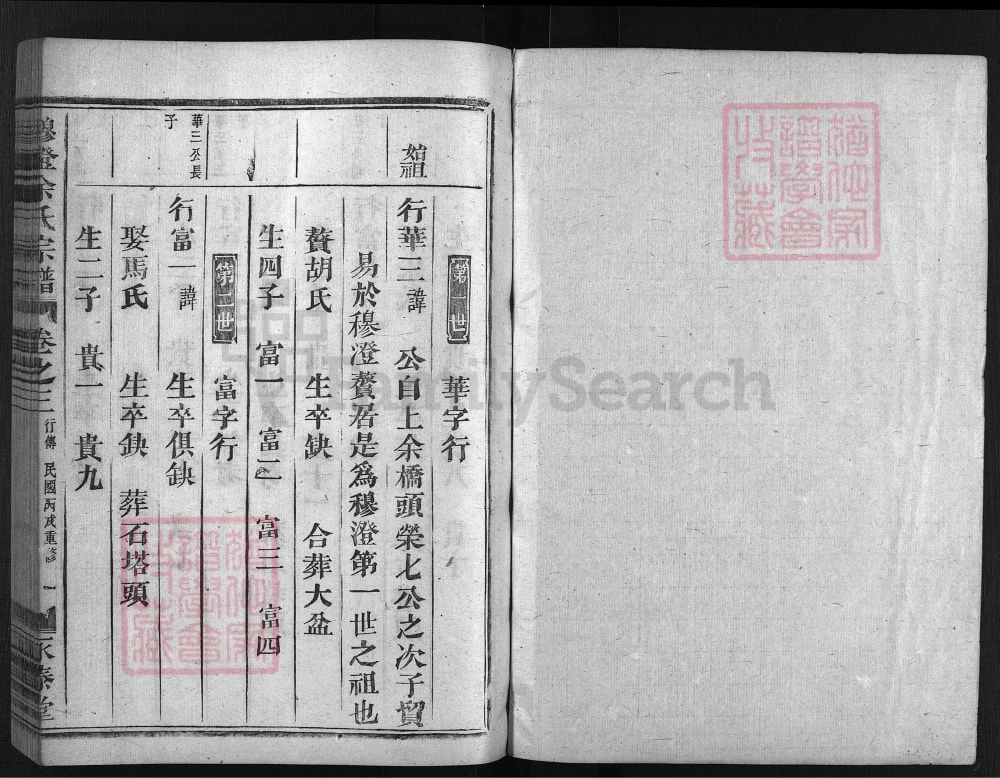 第一世 華字行
始祖 行華三 諱 公自上余橋頭榮七公之次子貿
易於穆澄贅居是爲穆澄第一世之祖也
贅胡氏 生卒缺 合葬大盆
生四子 富一 富二 富三 富四
第二世 富字行
華三公長
子
行富一 諱 生卒俱缺
娶馬氏 生卒缺 葬石塔頭
生二子 貴一 貴九
穆澄余氏宗譜 卷之三 行傳 民國丙戌重修 一 永泰堂
猶他家
譜學會
特藏
猶他家
譜學會
特藏
FamilySearch